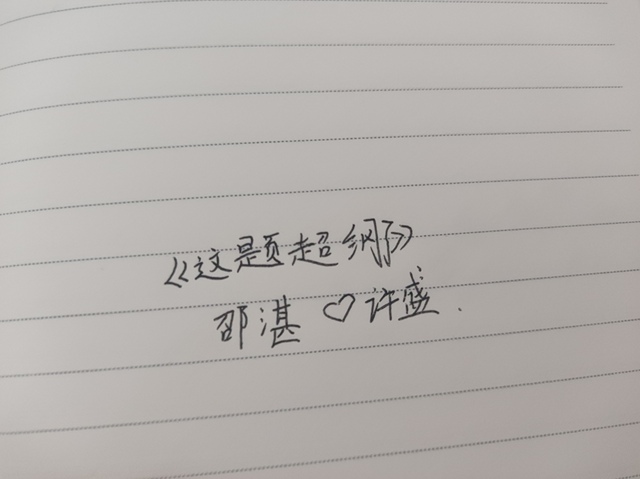 《这题超纲了》
邵湛♡许盛.